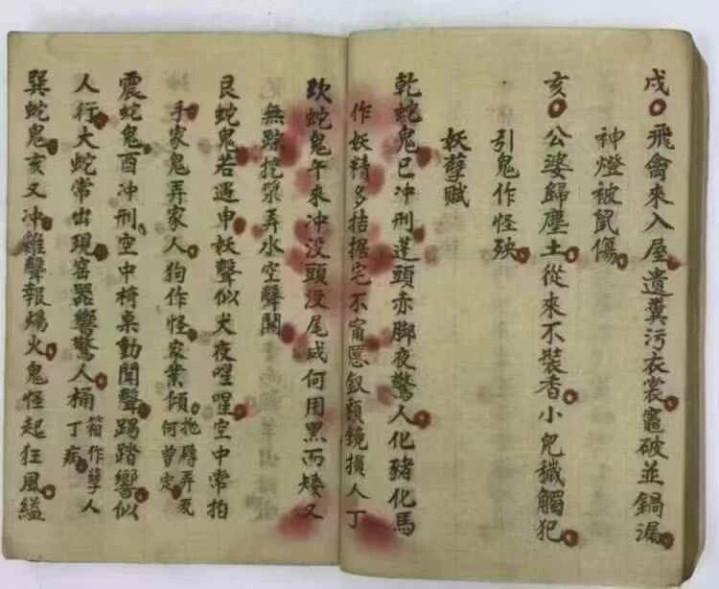 戌 飛禽來入屋遺糞污衣裳竈破並鍋漏
神燈被鼠傷
亥 公婆歸塵土從來不裝香小兒穢觸犯
引鬼作怪殃
妖孽賦
乾蛇鬼巳冲刑蓬頭赤脚夜驚人化豬化馬
作妖精多拮据宅不甯匿釵顛鏡損人丁
坎蛇鬼午來冲没頭没尾成何用黑而矮又
無踪挖漿弄水空聲閙
艮蛇鬼若遇申妖聲似犬夜哐哐空中常拍
手家鬼弄家人狗作怪家業傾抛磚弄瓦何曾定
震蛇鬼酉冲刑空中椅桌動聞聲踢踏響似
人行大蛇常出現窑器響驚人桶箱作孽人丁病
巽蛇鬼亥又冲雞聲報煬火鬼怪起狂風縊